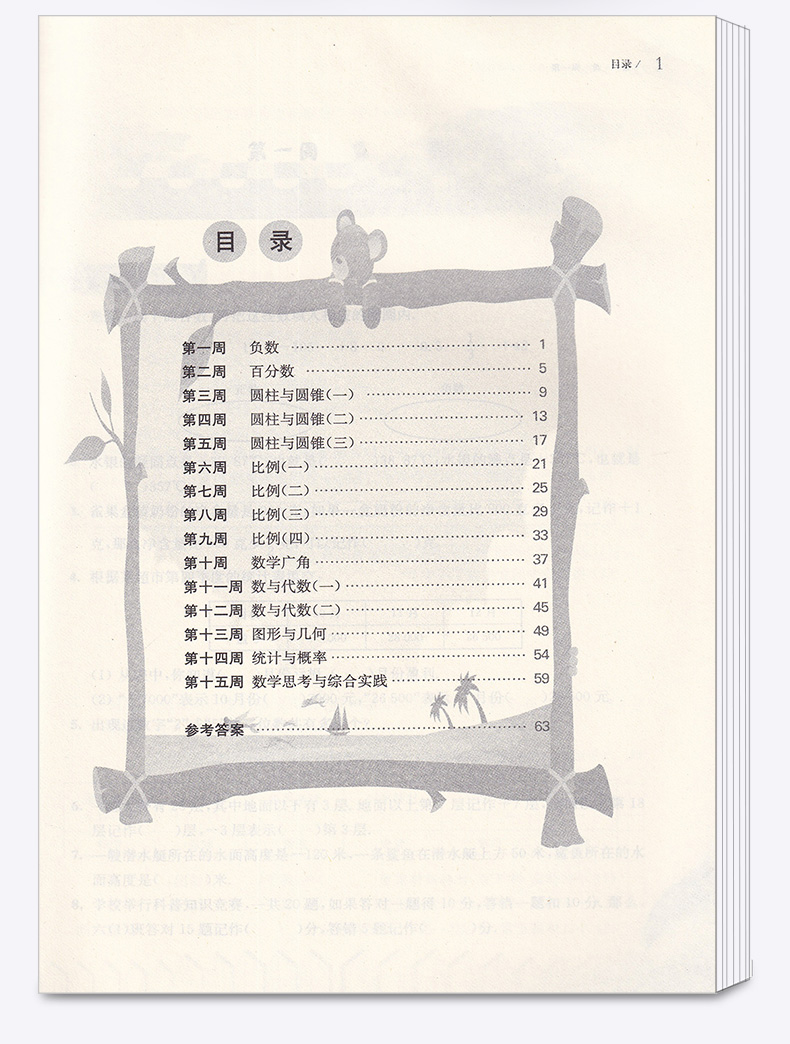 目录/ 1
目 录
第一周 负数 1
第二周 百分数 5
第三周 圆柱与圆锥(一) 9
第四周 圆柱与圆锥(二) 13
第五周 圆柱与圆锥(三) 17
第六周 比例(一) 21
第七周 比例(二) 25
第八周 比例(三) 29
第九周 比例(四) 33
第十周 数学广角 37
第十一周 数与代数(一) 41
第十二周 数与代数(二) 45
第十三周 图形与几何 49
第十四周 统计与概率 54
第十五周 数学思考与综合实践 59
参考答案 63